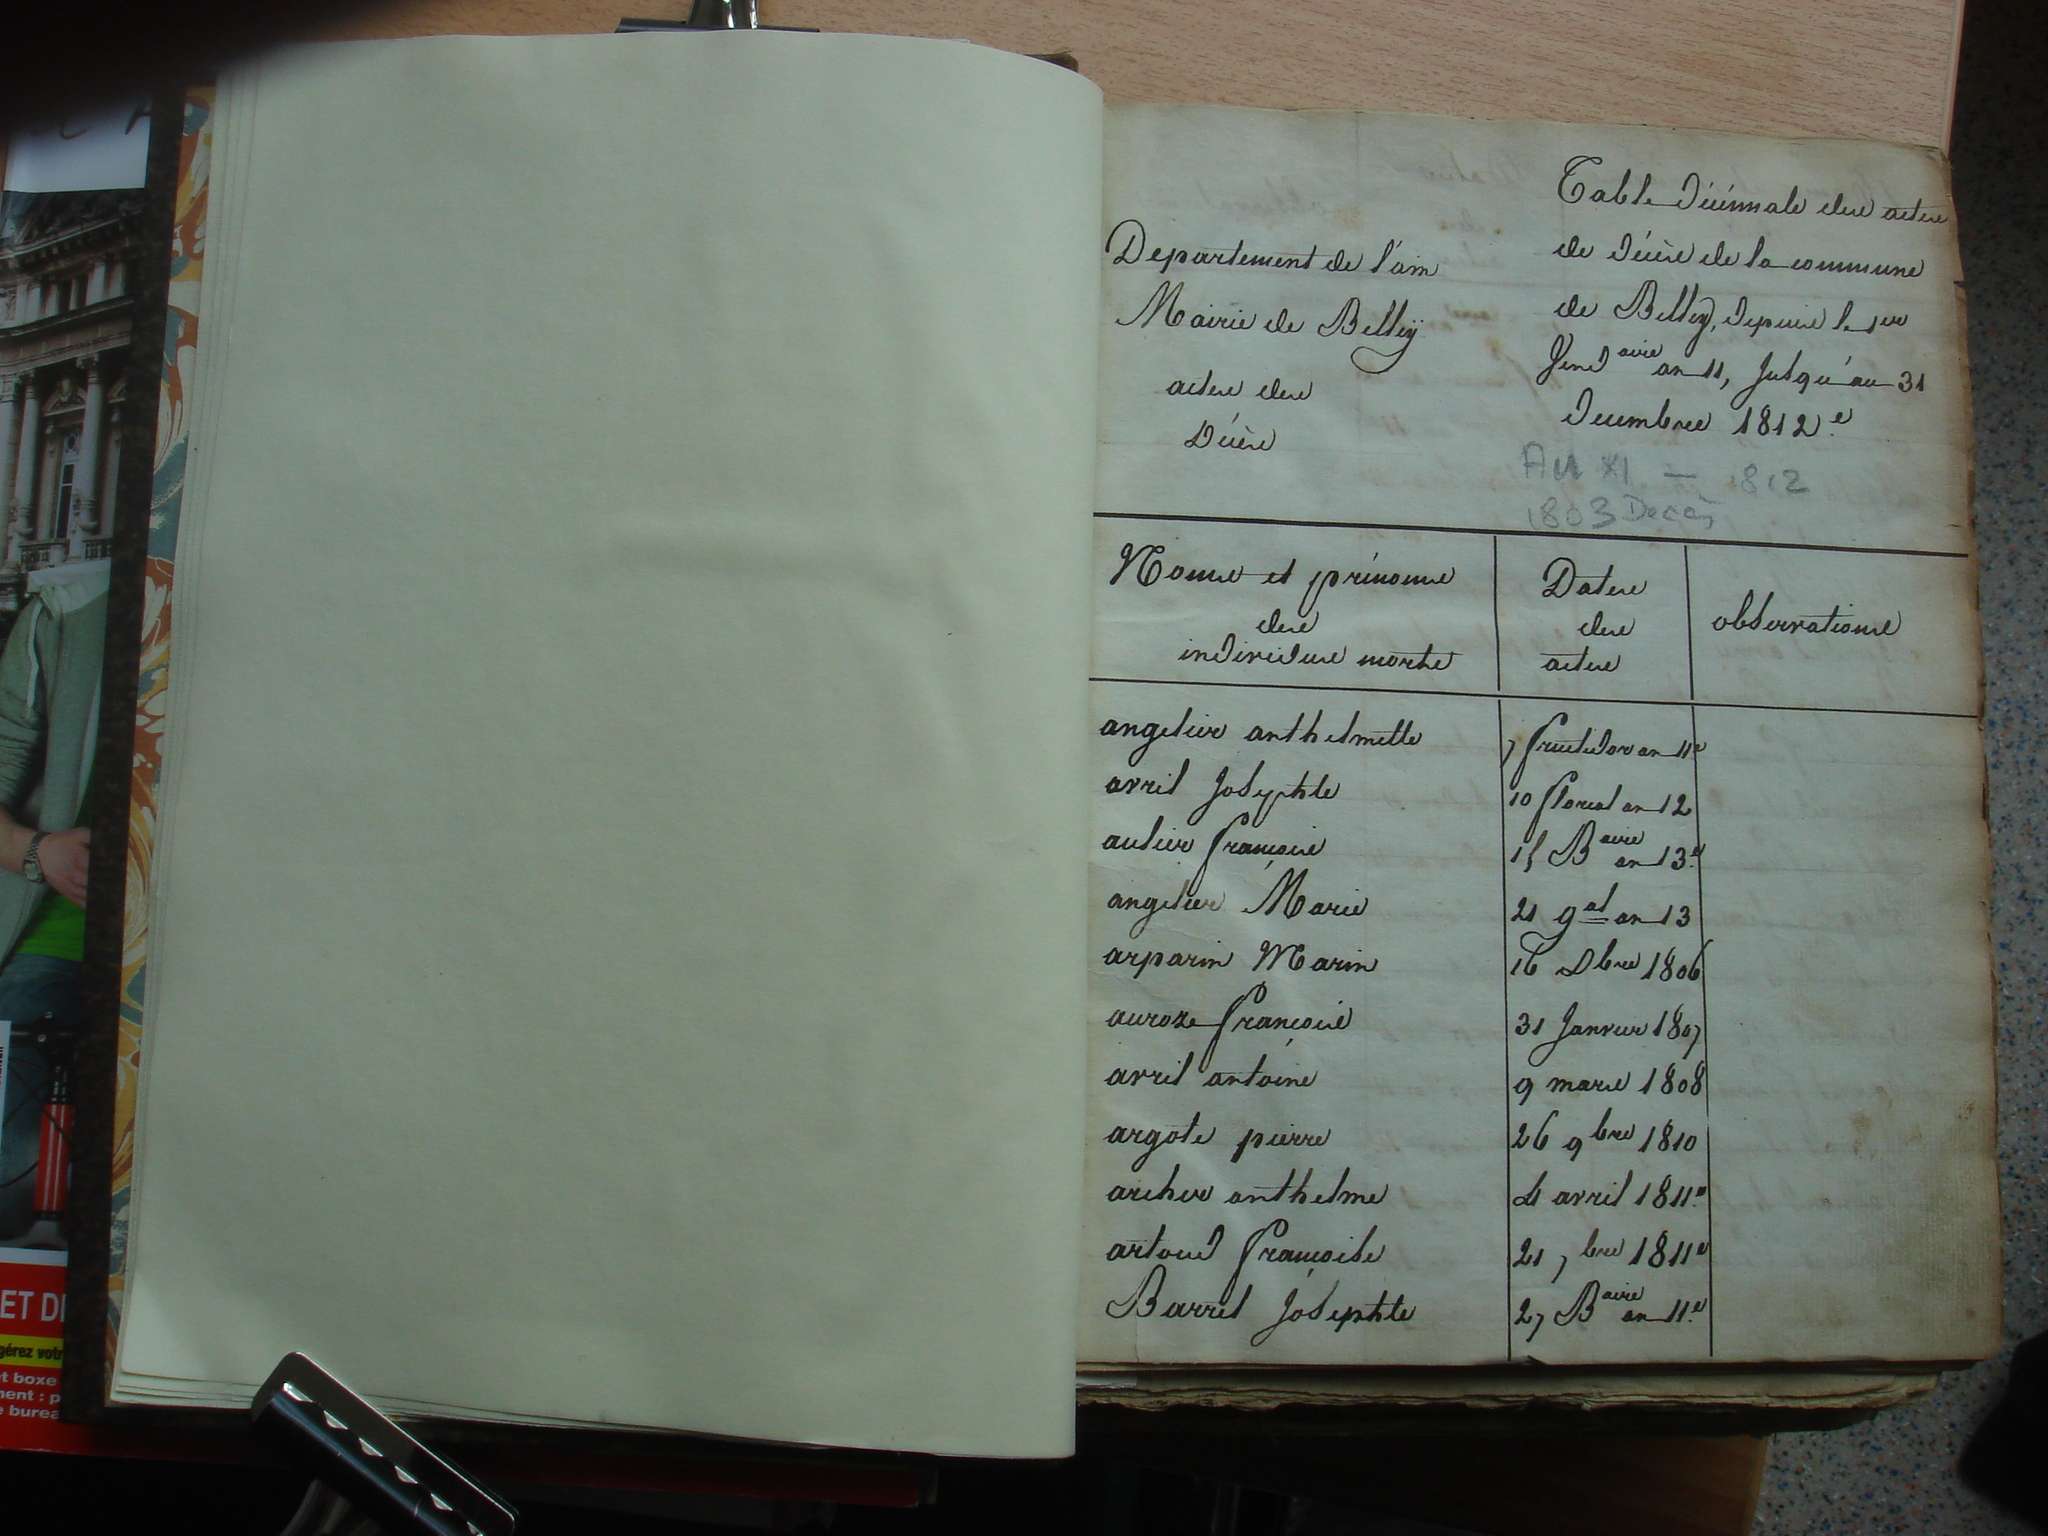 Departement de l'ain
Mairie de Belley
actes des
Décès
Table décennale des actes
de décès de la commune
de Belley, depuis le 1er
Vend aire an 11, jusqu'au 31
decembre 1812 e
AN XI — 1812
1803 Decès
Noms et prénoms
des
individus morts
Dates
des
actes
observations
angelier anthelmette 7 fructidor an 11e
avril Josephte 10 floreal an 12
autier françois 15 B aire an 13e
angelier Marie 21 gal an 13
arparin Marin 16 Xbre 1806
auroze françois 31 Janvier 1807
avril antoine 9 mars 1808
argote pierre 26 9bre 1810
archer anthelme 4 avril 1811e
artoud françoise 21 7bre 1811e
Barril Josephte 27 B aire an 11e
ET DE
gérez votr
et boxe
ment : p
e burea